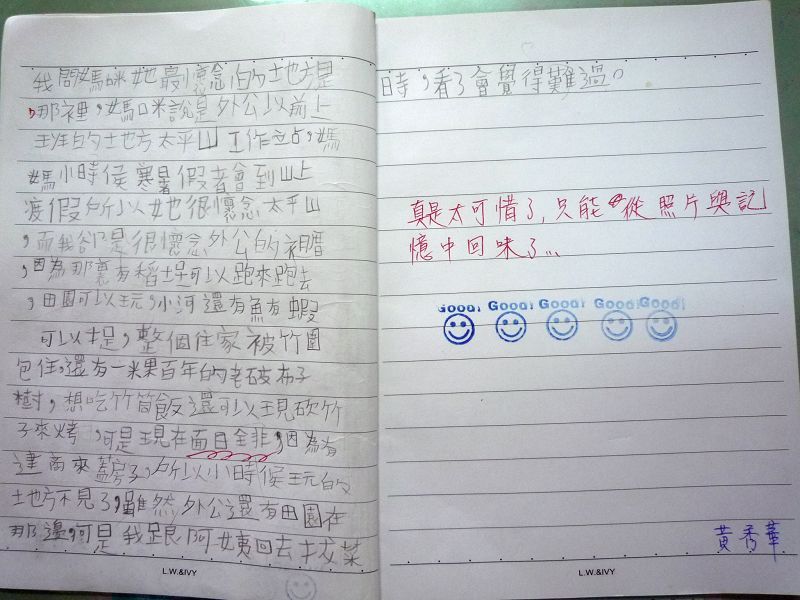 我問媽咪她最懷念的地方是
那裡，媽咪說是外公以前上
班的地方太平山工作站，媽
媽小時侯寒暑假都會到山上
渡假所以她也很懷念太平山
，而我卻是很懷念外公的祖厝
，因為那裏有稻埕可以跑來跑去
，田園可以玩，小河還有魚有蝦
可以捉，整個住家被竹圍
包住，還有一棵百年的老破布子
樹，想吃竹筒飯還可以現砍竹
子來烤，可是現在面目全非，因為有
建商來蓋房子，所以小時侯玩的
地方不見了，雖然外公還有田園在
那邊，可是我跟阿姨回去拔菜
時，看了會覺得難過。
真是太可惜了，只能從照片與記
憶中回味了...
Good! Good! Good! Good! Good!
黃秀華
L.W.&IVY
L.W.&IVY